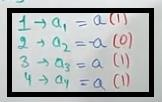 1 → a₁ = a (1)
2 → a₂ = -a (0)
3 → a₃ = a (1)
4 → a₄ = a (1)